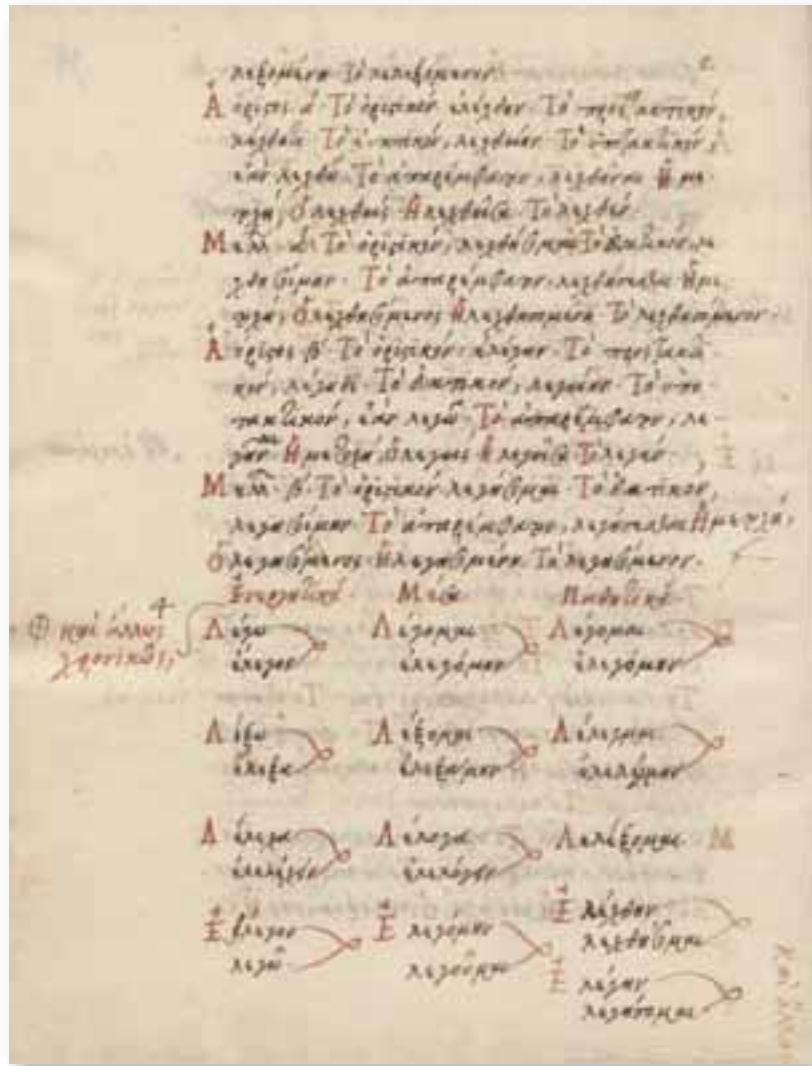 λεξομένη Τὸ λελεξόμενον
Ἀόριστος ά Τὸ ὁριστικόν ἐλέχθην Τὸ προστακτικόν,
λέχθητι Τὸ εὐκτικόν, λεχθείην Τὸ ὑποτακτικόν,
ἐὰν λεχθῶ Τὸ ἀπαρέμφατον, λεχθῆναι Ἡ με-
τοχή, ὁ λεχθείς Ἡ λεχθεῖσα Τὸ λεχθέν
Μέλλ ά Τὸ ὁριστικόν, λεχθήσομαι Τὸ εὐκτικόν, λε
χθησοίμην Τὸ ἀπαρέμφατον, λεχθήσεσθαι Ἡ με
τοχή, ὁ λεχθησόμενος Ἡ λεχθησομένη Τὸ λεχθησόμενον
Ἀόριστος β Τὸ ὁριστικόν ἐλέγην Τὸ προστακτι-
κόν, λέγηθι Τὸ εὐκτικόν, λεγείην Τὸ ὑπο-
τακτικόν, ἐὰν λεγῶ Τὸ ἀπαρέμφατον, λε-
γῆναι Ἡ μετοχή, ὁ λεγείς Ἡ λεγεῖσα Τὸ λεγέν
Μέλλ β Τὸ ὁριστικόν λεγήσομαι Τὸ εὐκτικόν,
λεγησοίμην Τὸ ἀπαρέμφατον, λεγήσεσθαι Ἡ μετοχή,
ὁ λεγησόμενος Ἡ λεγησομένη Τὸ λεγησόμενον
Ἐνεργητικά Μέσα Παθητικά
καὶ ἄλλως
χρονικῶς,
Λέγω Λέγομαι Λέγομαι
ἔλεγον ἐλεγόμην ἐλεγόμην
Λέξω Λέξομαι Λέλεγμαι
ἔλεξα ἐλεξάμην ἐλελέγμην
Λέλεχα Λέλογα Λελέξομαι Μ
ἐλελέχειν ἐλελόγειν
Ἔλεγον Ἐλεγόμην Ἐλέχθην
λεγῶ λεγοῦμαι λεχθήσομαι
Ἐλέγην
λεγήσομαι